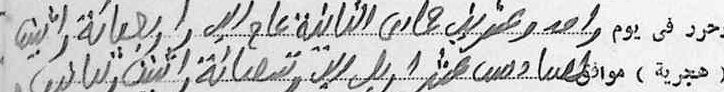 وحرر فى يوم واحد وعشرين جمادى الثانية عام الف واربعمائة واثنين
( هجرية ) موافق لسادس عشر ابريل الف وتسعمائة واثنين وثمانين